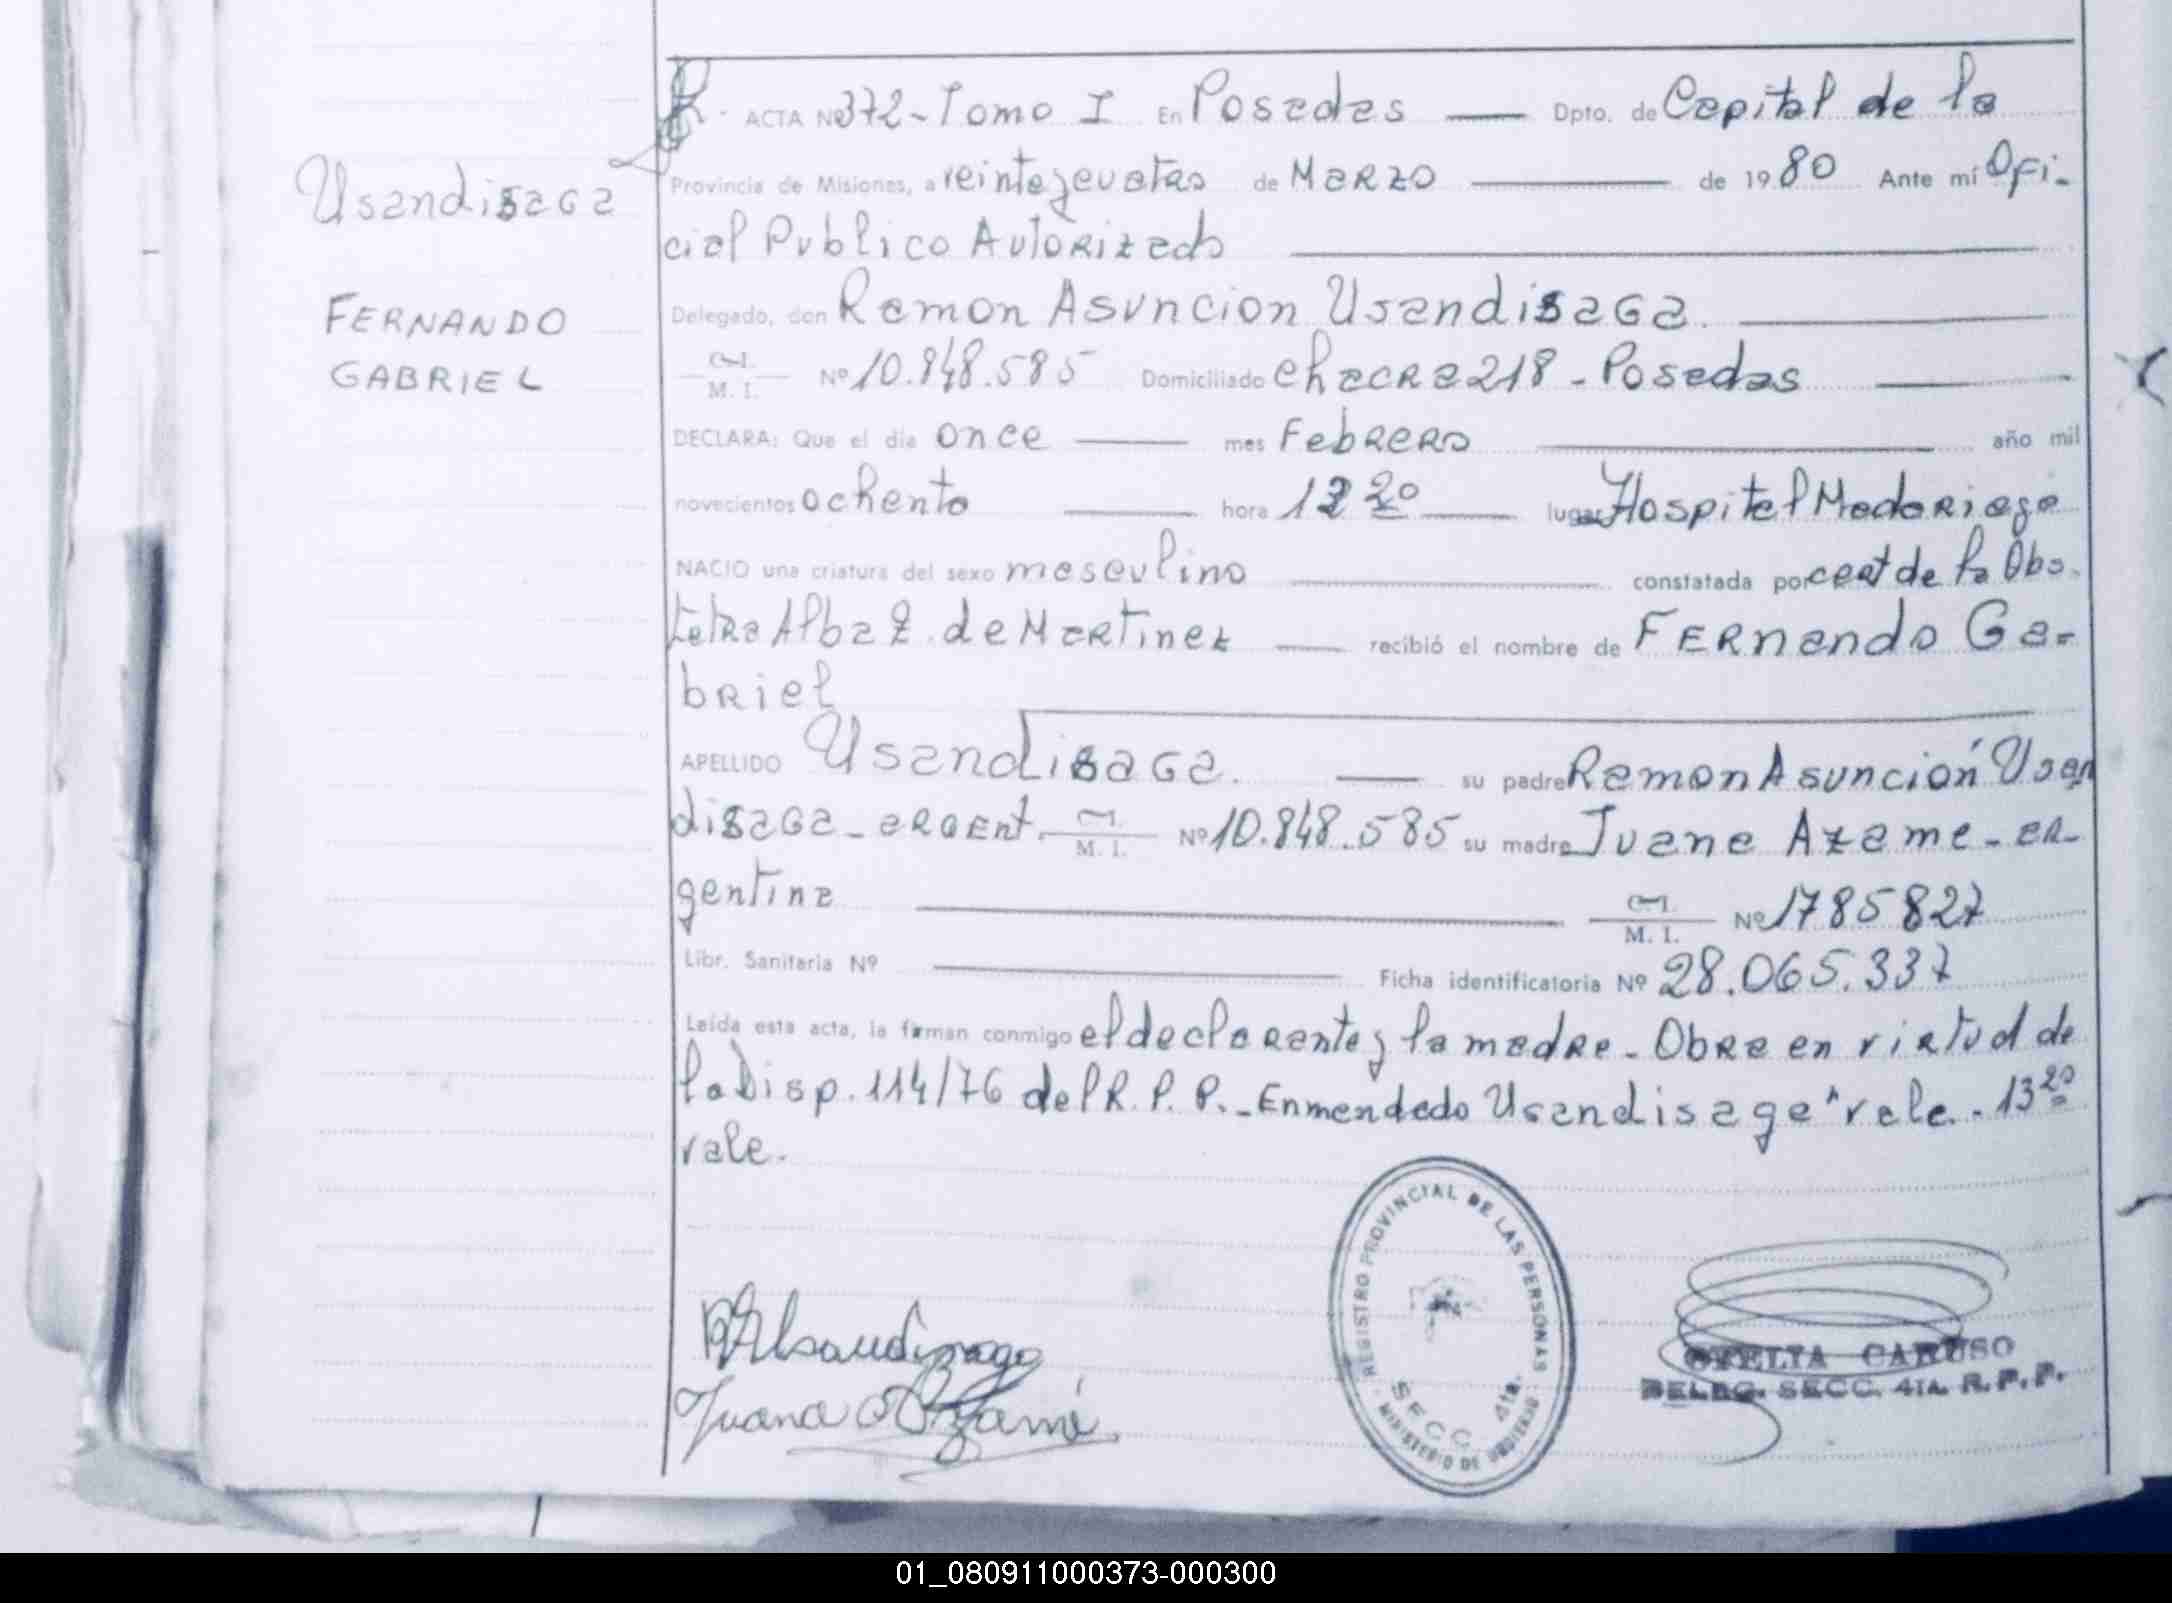 ACTA Nº 372 - Tomo I En Posadas Dpto. de Capital de la
Provincia de Misiones, a veinticuatro de Marzo de 1980 Ante mí Ofi-
cial Publico Autorizado
Usandisaga
FERNANDO
GABRIEL
Delegado, don Ramon Asuncion Usandisaga.
C.I. M. I. Nº 10.848.585 Domiciliado chacra 218 - Posadas
DECLARA: Que el día once mes Febrero año mil
novecientos ochenta hora 20 lugar Hospital Madariaga
NACIO una criatura del sexo masculino constatada por cert de la Obs.
tetra Alba Z. de Martinez recibió el nombre de Fernando Ga-
briel
APELLIDO Usandisaga. su padre Ramon Asunción Usan
disaga - argent. C.I. M. I. Nº 10.848.585 su madre Juana Azame - ar-
gentina C.I. M. I. Nº 1785827
Libr. Sanitaria Nº Ficha identificatoria Nº 28.065.337
Leída esta acta, la firman conmigo el declarante y la madre - Obra en virtud de
la Disp. 114/76 del R. P. P. - Enmendado Usandisaga" vale. - 13 20
vale.
Juana Azamé
REGISTRO PROVINCIAL DE LAS PERSONAS
SECC. 4ta.
MINISTERIO DE GOBIERNO
OFELIA CARUSO
DELEG. SECC. 4TA. R. P. P.
01_080911000373-000300